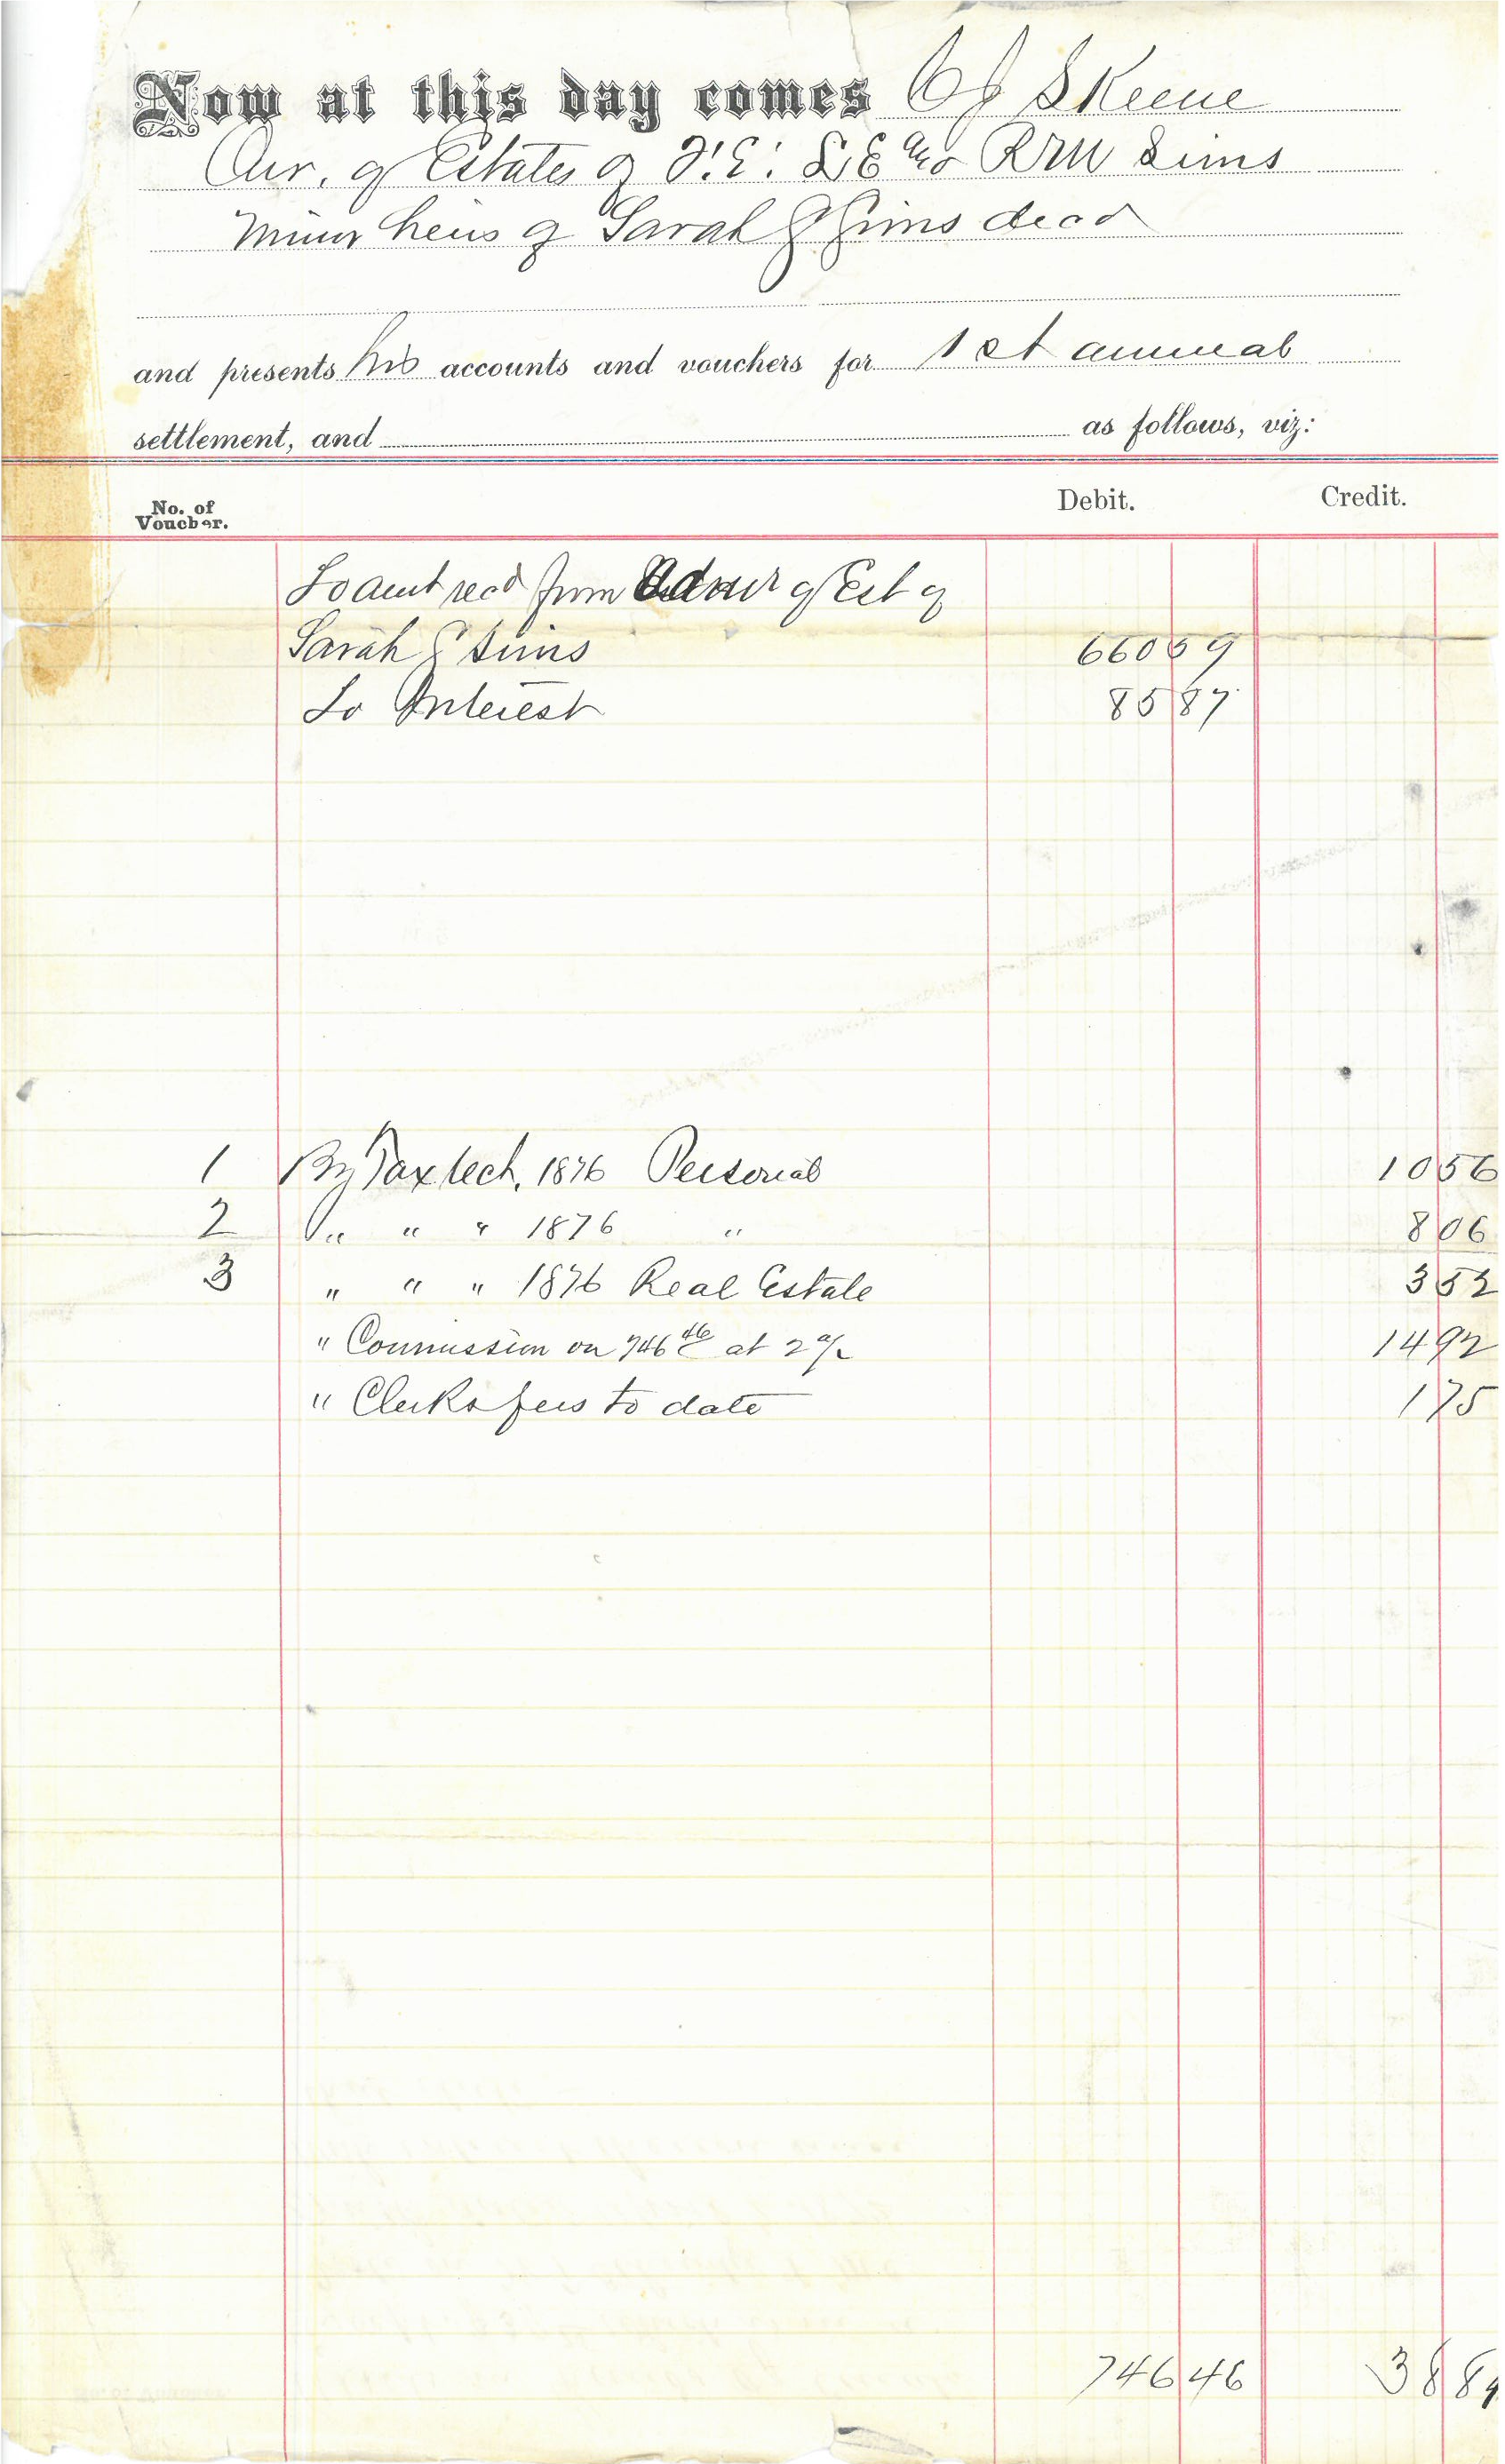 Now at this day comes C J SKeene
Cur. of Estates of F. E. L E and R M W Sims
Minor heirs of Sarah E Sims decd
and presents his accounts and vouchers for 1st annual
settlement, and as follows, viz:
No. of Voucher. Debit. Credit.
To amt recd from Admr of Est of
Sarah E Sims 660 59
To Interest 85 87
1 By Tax rect, 1876 Personal 10 56
2 " " " 1876 " 8 06
3 " " " 1876 Real Estate 3 52
" Commission on 746 46 at 2 % 14 92
" Clerks fees to date 1 75
746 46 38 81